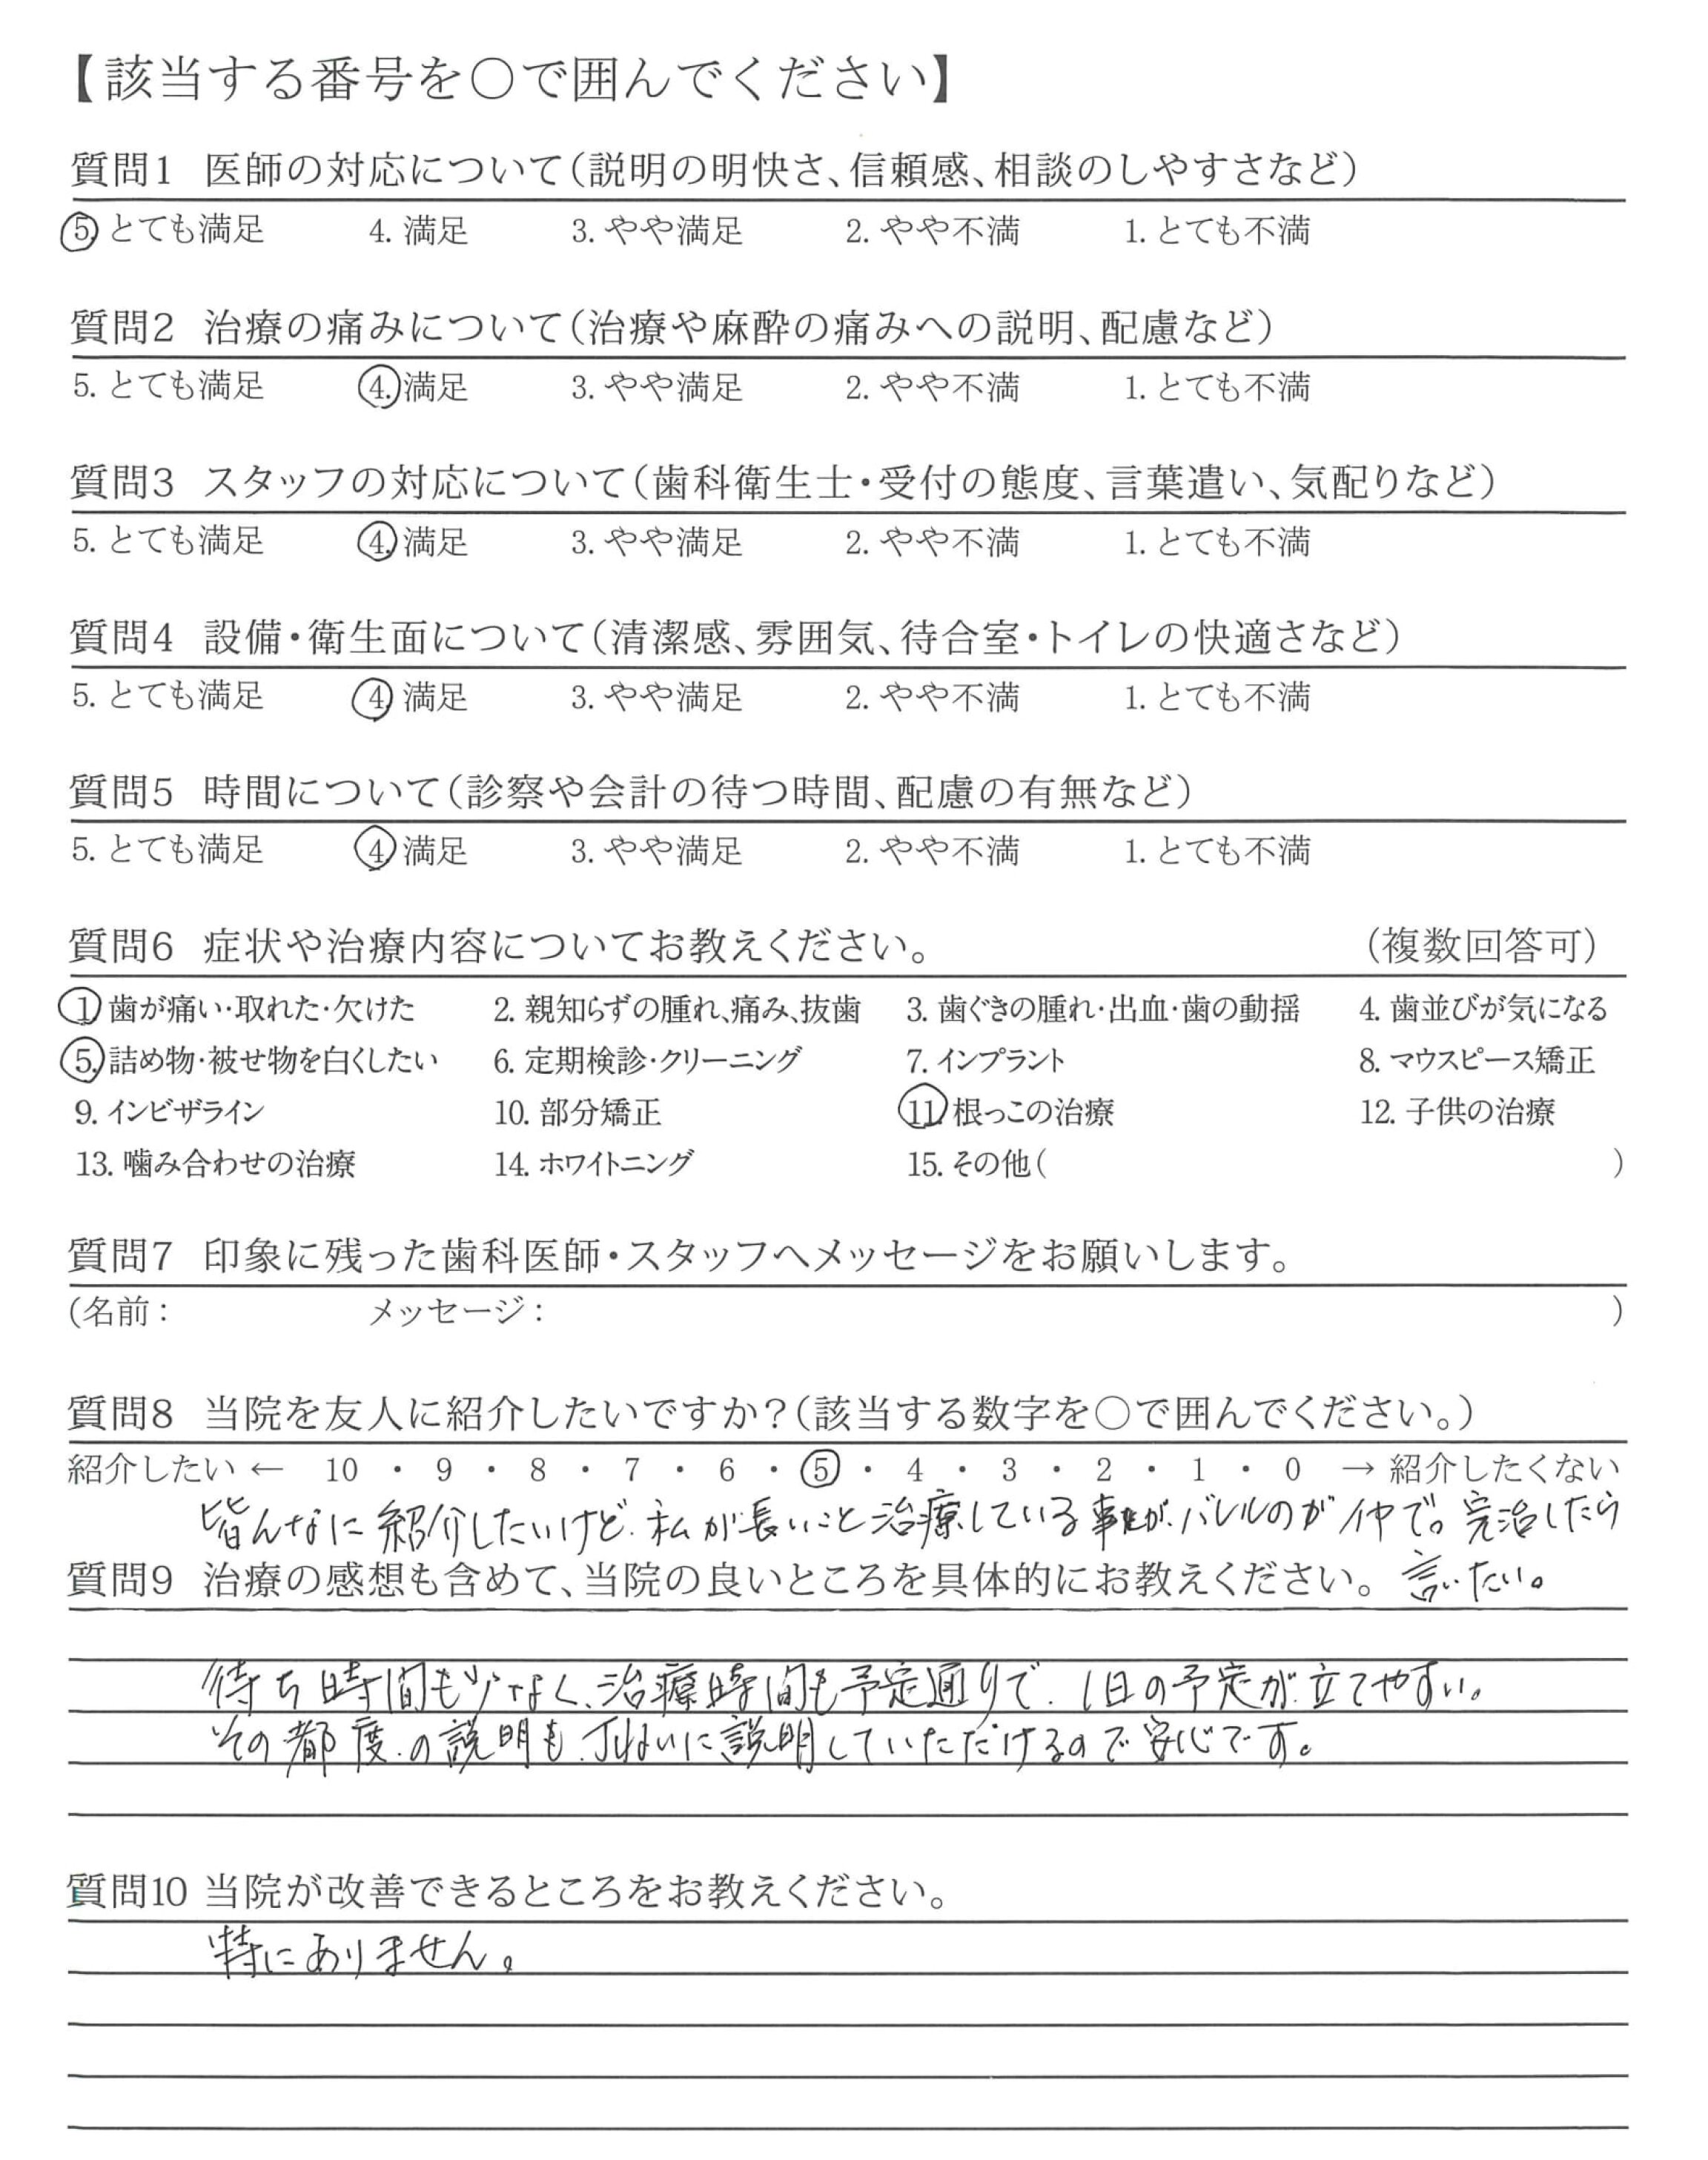 【該当する番号を○で囲んでください】
質問1 医師の対応について(説明の明快さ、信頼感、相談のしやすさなど)
5. とても満足 4. 満足 3. やや満足 2. やや不満 1. とても不満
質問2 治療の痛みについて(治療や麻酔の痛みへの説明、配慮など)
5. とても満足 4. 満足 3. やや満足 2. やや不満 1. とても不満
質問3 スタッフの対応について(歯科衛生士・受付の態度、言葉遣い、気配りなど)
5. とても満足 4. 満足 3. やや満足 2. やや不満 1. とても不満
質問4 設備・衛生面について(清潔感、雰囲気、待合室・トイレの快適さなど)
5. とても満足 4. 満足 3. やや満足 2. やや不満 1. とても不満
質問5 時間について(診察や会計の待つ時間、配慮の有無など)
5. とても満足 4. 満足 3. やや満足 2. やや不満 1. とても不満
質問6 症状や治療内容についてお教えください。 (複数回答可)
1. 歯が痛い・取れた・欠けた 2. 親知らずの腫れ、痛み、抜歯 3. 歯ぐきの腫れ・出血・歯の動揺 4. 歯並びが気になる
5. 詰め物・被せ物を白くしたい 6. 定期検診・クリーニング 7. インプラント 8. マウスピース矯正
9. インビザライン 10. 部分矯正 11. 根っこの治療 12. 子供の治療
13. 噛み合わせの治療 14. ホワイトニング 15. その他( )
質問7 印象に残った歯科医師・スタッフへメッセージをお願いします。
(名前: メッセージ: )
質問8 当院を友人に紹介したいですか?(該当する数字を○で囲んでください。)
紹介したい ← 10 ・ 9 ・ 8 ・ 7 ・ 6 ・ 5 ・ 4 ・ 3 ・ 2 ・ 1 ・ 0 → 紹介したくない
皆んなに紹介したいけど、私が長いこと治療している事が、バレルのが 。完治したら
質問9 治療の感想も含めて、当院の良いところを具体的にお教えください。 言いたい。
待ち時間も少なく、治療時間も予定通りで、1日の予定が立てやすい。
その都度の説明も、丁ねいに説明していただけるので安心です。
質問10 当院が改善できるところをお教えください。
特にありません。